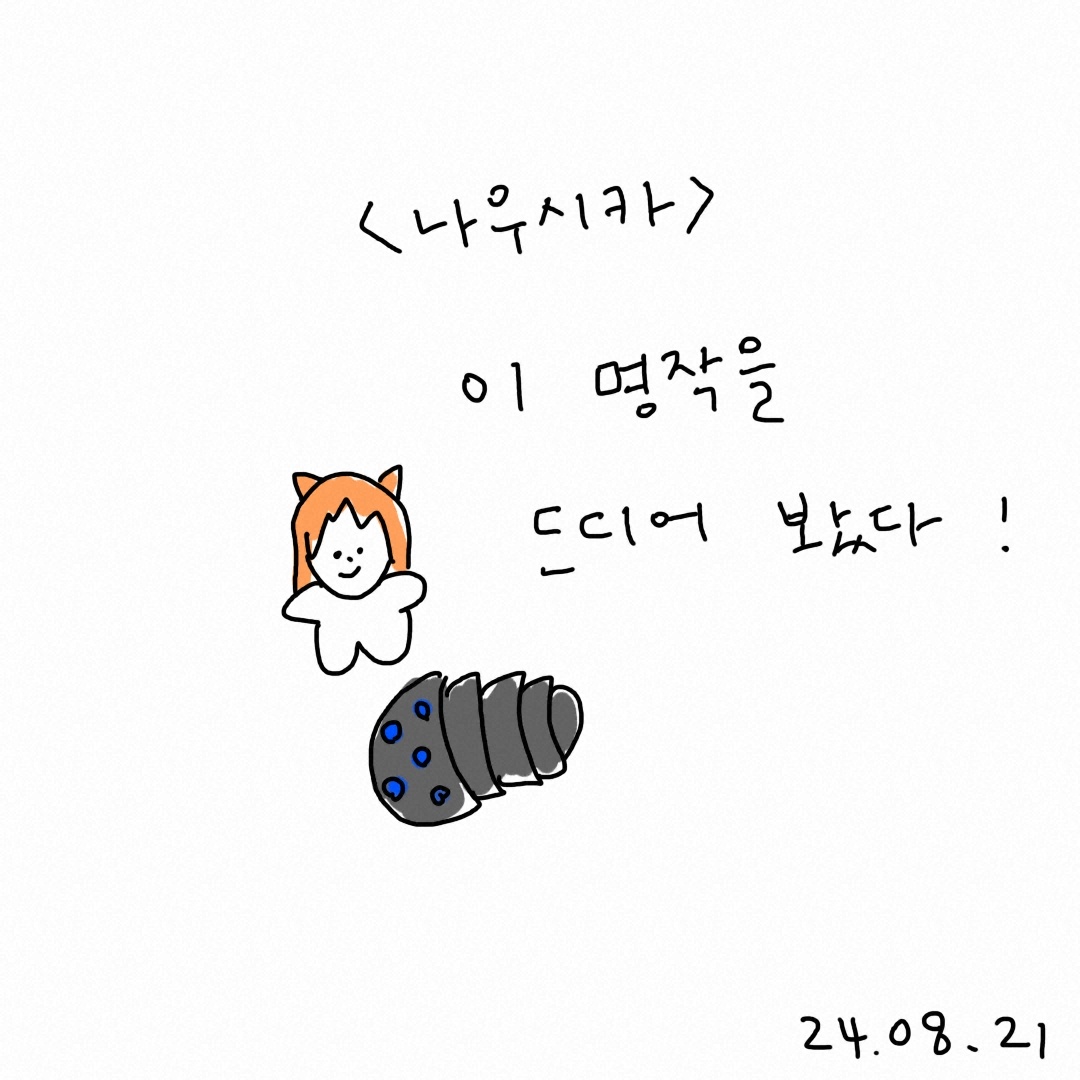 <나우시카>
이 명작을
드디어 봤다 !
24.08.21